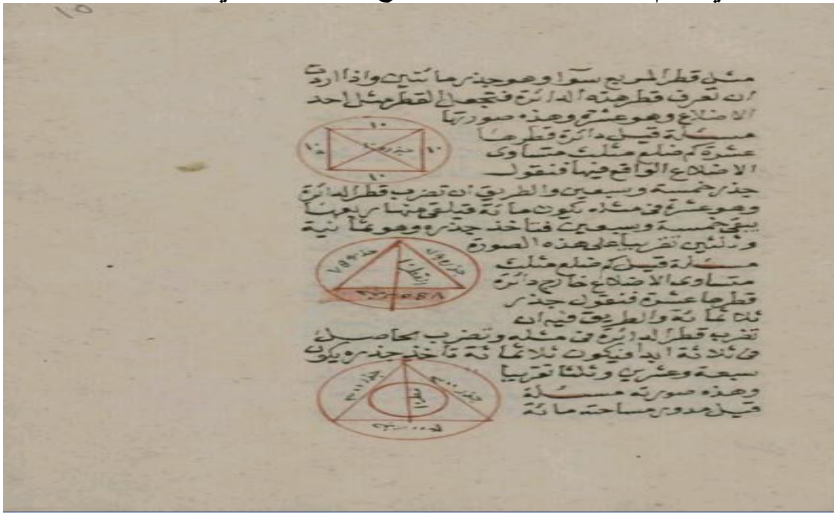 مثل قطر المربع سوا وهو جذر مائتين واذا اردت
ان تعرف قطر هذه الدائرة فتجعل القطر مثل احد
الاضلاع وهو عشرة وهذه صورتها
مسئلة قيل دائرة قطرها
عشرة كم ضلع مثلث متساوى
الاضلاع الواقع فيها فنقول
جذر خمسة وسبعين والطريق ان تضرب قطر الدائرة
وهو عشرة فى مثله يكون مائة فيلقى منها ربعها
يبقى خمسة وسبعين فتاخذ جذره وهو ثمانية
وثلثين تقريبا على هذه الصورة
مسئلة قيل كم ضلع مثلث
متساوى الاضلاع خارج دائرة
قطرها عشرة فنقول جذر
ثلاثمائة والطريق فيه ان
تضرب قطر الدائرة فى مثله وتضرب الحاصل
فى ثلاثة ابدا فيكون ثلاثمائة تاخذ جذره يكون
سبعة وعشرين وثلثا تقريبا
وهذه صورته مسئلة
قيل مدور مساحته مائة
١٠
١٠
١٠
١٠
القطر
جذر ٣٠٠
جذر ٣٠٠